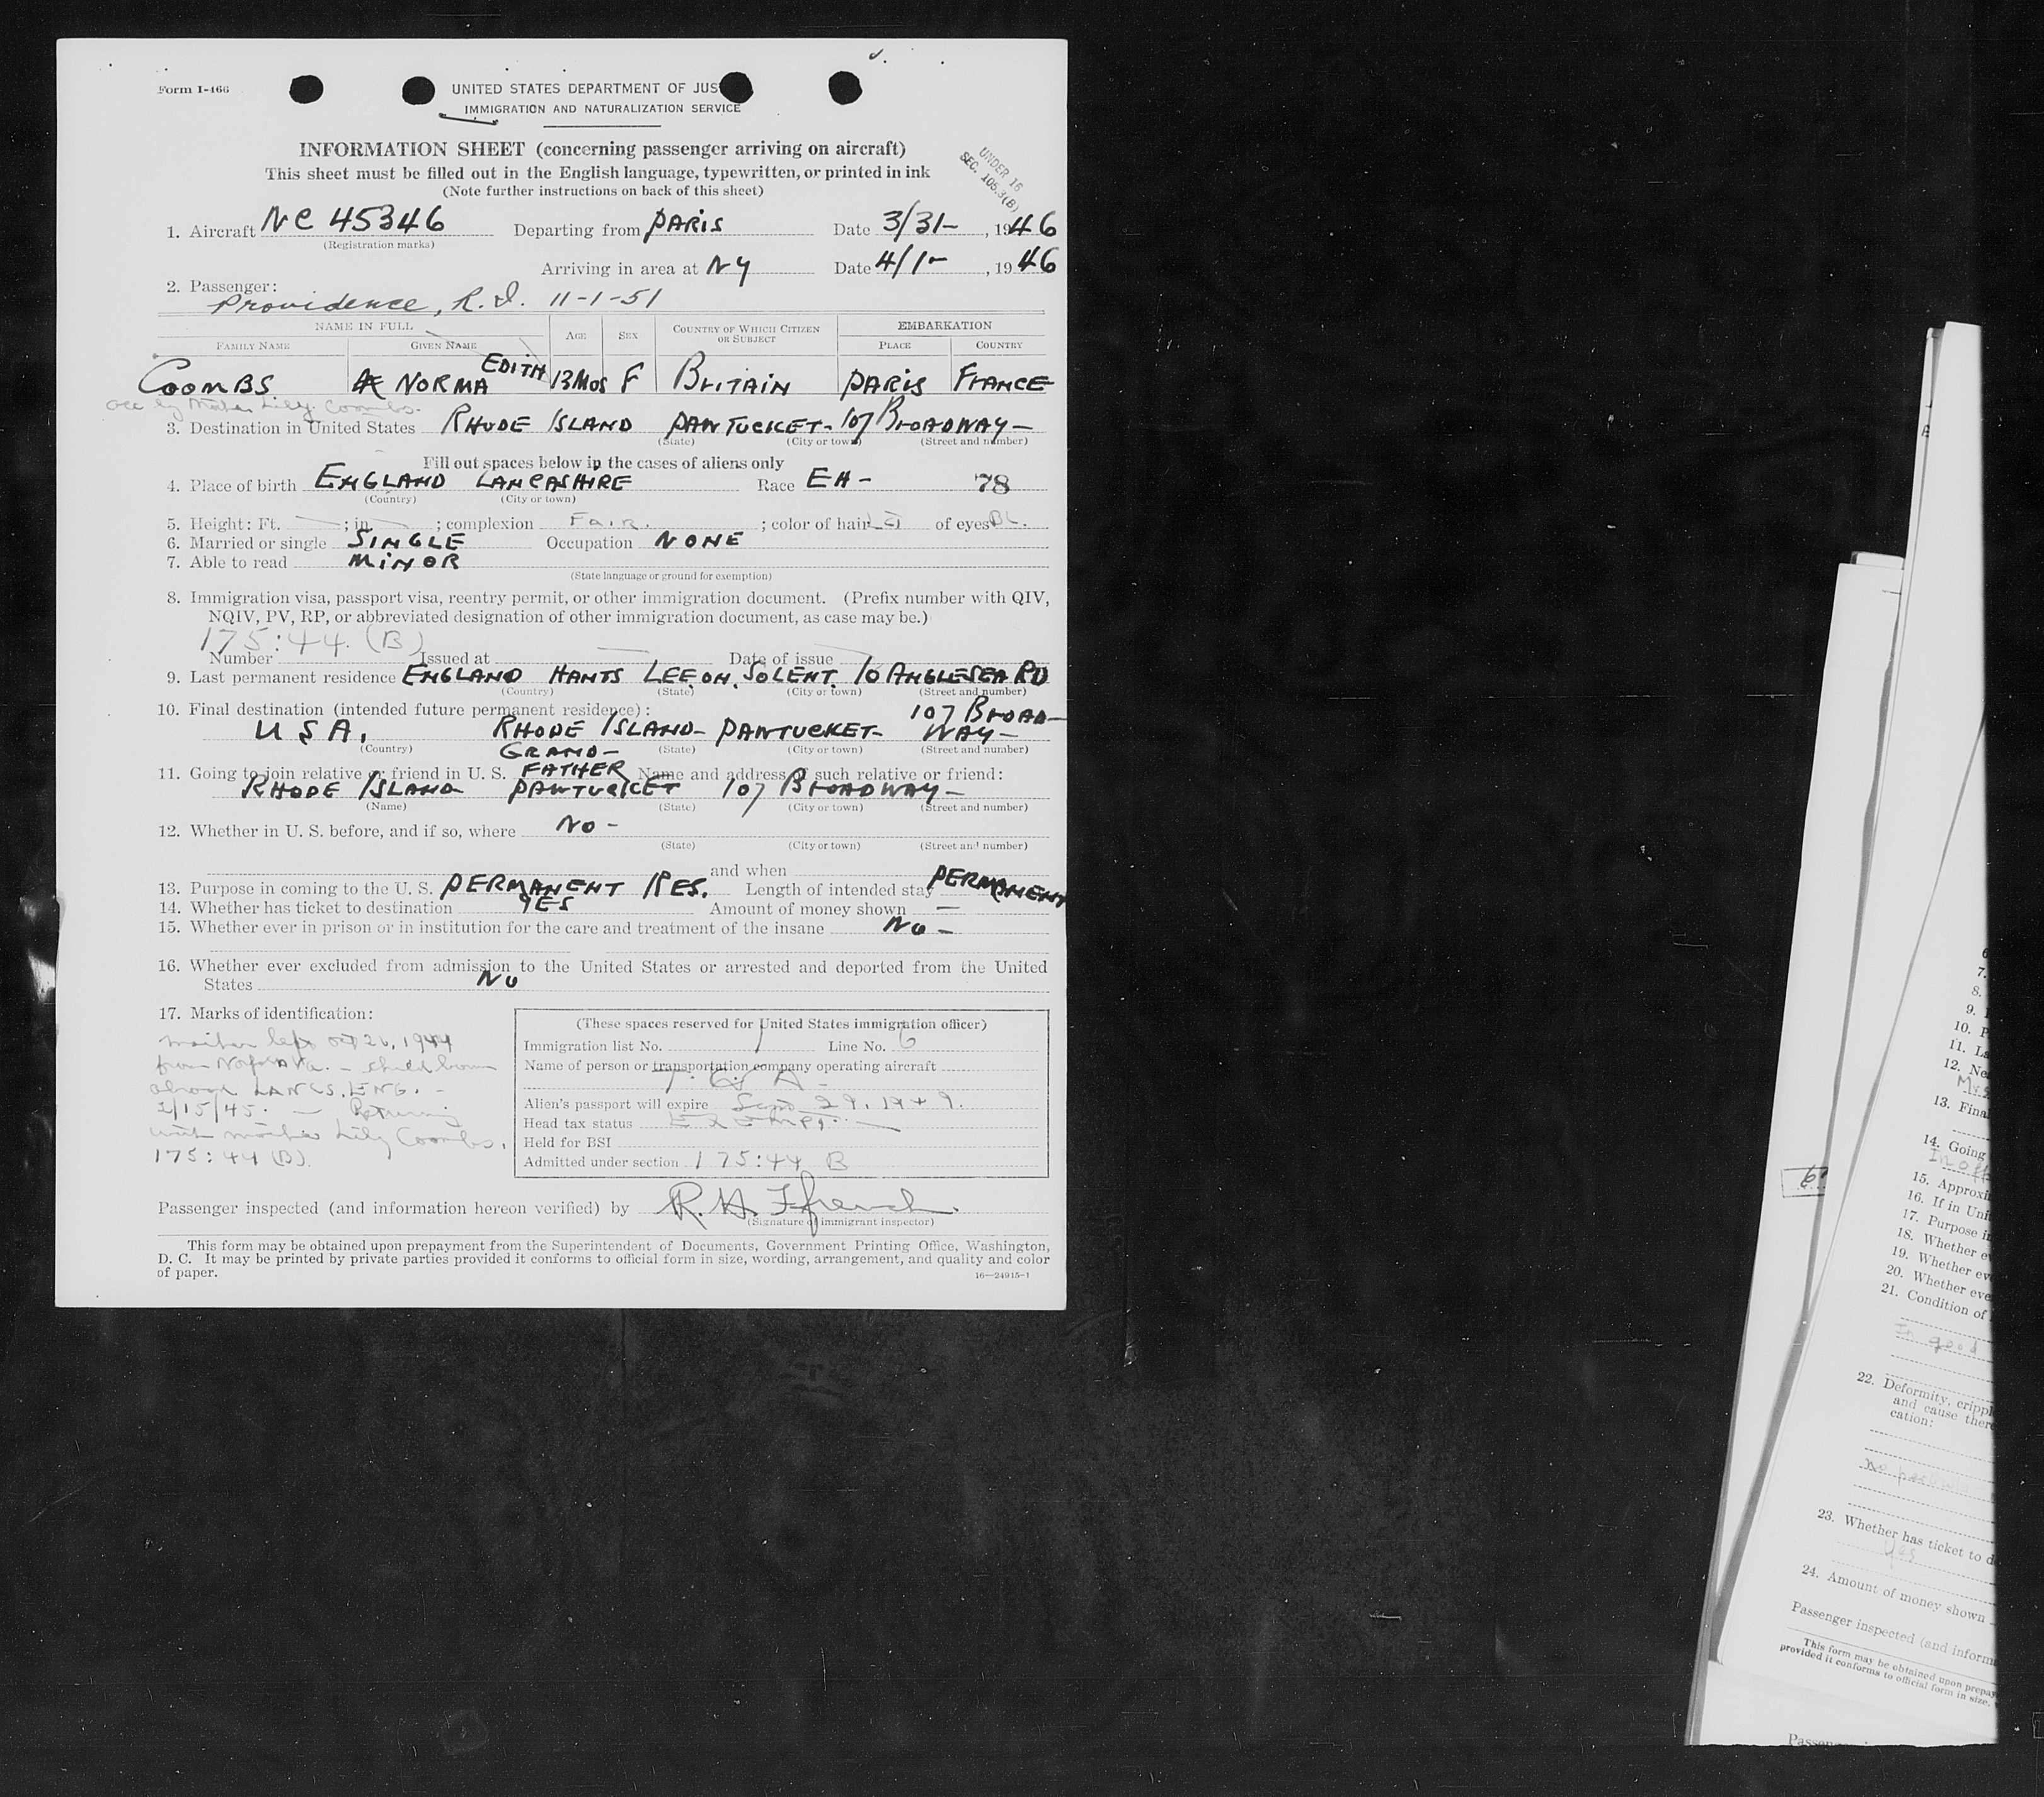 Form I-466
UNITED STATES DEPARTMENT OF JUS
IMMIGRATION AND NATURALIZATION SERVICE
INFORMATION SHEET (concerning passenger arriving on aircraft)
This sheet must be filled out in the English language, typewritten, or printed in ink
(Note further instructions on back of this sheet)
UNDER 16
SEC. 105.3(B)
1. Aircraft NC 45346 Departing from PARIS Date 3/31-, 1946
(Registration marks)
Arriving in area at NY Date 4/1-, 1946
2. Passenger:
Providence, R.I. 11-1-51
NAME IN FULL AGE SEX COUNTRY OF WHICH CITIZEN OR SUBJECT EMBARKATION
FAMILY NAME GIVEN NAME PLACE COUNTRY
COOMBS NORMA EDITH 13 MOS F BRITAIN PARIS FRANCE
acc by Mother Lily Coombs.
3. Destination in United States RHODE ISLAND PAWTUCKET- 107 BROADWAY-
(State) (City or town) (Street and number)
Fill out spaces below in the cases of aliens only
4. Place of birth ENGLAND LANCASHIRE Race EN- 78
(Country) (City or town)
5. Height: Ft. ; in. ; complexion Fair. ; color of hair of eyes BL.
6. Married or single SINGLE Occupation NONE
7. Able to read MINOR
(State language or ground for exemption)
8. Immigration visa, passport visa, reentry permit, or other immigration document. (Prefix number with QIV,
NQIV, PV, RP, or abbreviated designation of other immigration document, as case may be.)
175:44. (B)
Number Issued at — Date of issue
9. Last permanent residence ENGLAND HANTS LEE.ON.SOLENT. 10 ANGLESEA RD
(Country) (State) (City or town) (Street and number)
10. Final destination (intended future permanent residence):
USA. RHODE ISLAND- PAWTUCKET- 107 BROAD-WAY-
(Country) (State) (City or town) (Street and number)
11. Going to join relative or friend in U. S. GRAND-FATHER Name and address of such relative or friend:
RHODE ISLAND PAWTUCKET 107 BROADWAY-
(Name) (State) (City or town) (Street and number)
12. Whether in U. S. before, and if so, where NO-
(State) (City or town) (Street and number)
and when
13. Purpose in coming to the U. S. PERMANENT RES. Length of intended stay PERMANENT
14. Whether has ticket to destination YES Amount of money shown —
15. Whether ever in prison or in institution for the care and treatment of the insane NO-
16. Whether ever excluded from admission to the United States or arrested and deported from the United
States NO
17. Marks of identification:
mother left oct 26, 1944
from Norf. Va. - child born
abroad LANCS. ENG. -
2/15/45. — Returning
with mother Lily Coombs.
175:44 (B).
(These spaces reserved for United States immigration officer)
Immigration list No. 1 Line No. 6
Name of person or transportation company operating aircraft
T. W A -
Alien's passport will expire Sept 29, 1949.
Head tax status Exempt. —
Held for BSI
Admitted under section 175:44 B
Passenger inspected (and information hereon verified) by R. H. Ffrench
(Signature of immigrant inspector)
This form may be obtained upon prepayment from the Superintendent of Documents, Government Printing Office, Washington,
D. C. It may be printed by private parties provided it conforms to official form in size, wording, arrangement, and quality and color
of paper.
16—24915-1
6
7.
8.
9.
10. P
11. La
12. Ne
13. Fina
14. Going
15. Approxi
16. If in Uni
17. Purpose i
18. Whether e
19. Whether ev
20. Whether eve
21. Condition of
In good
22. Deformity, crippl
and cause there
cation:
23. Whether has ticket to d
Yes
24. Amount of money shown
Passenger inspected (and inform
This form may be obtained upon prepay
provided it conforms to official form in size,